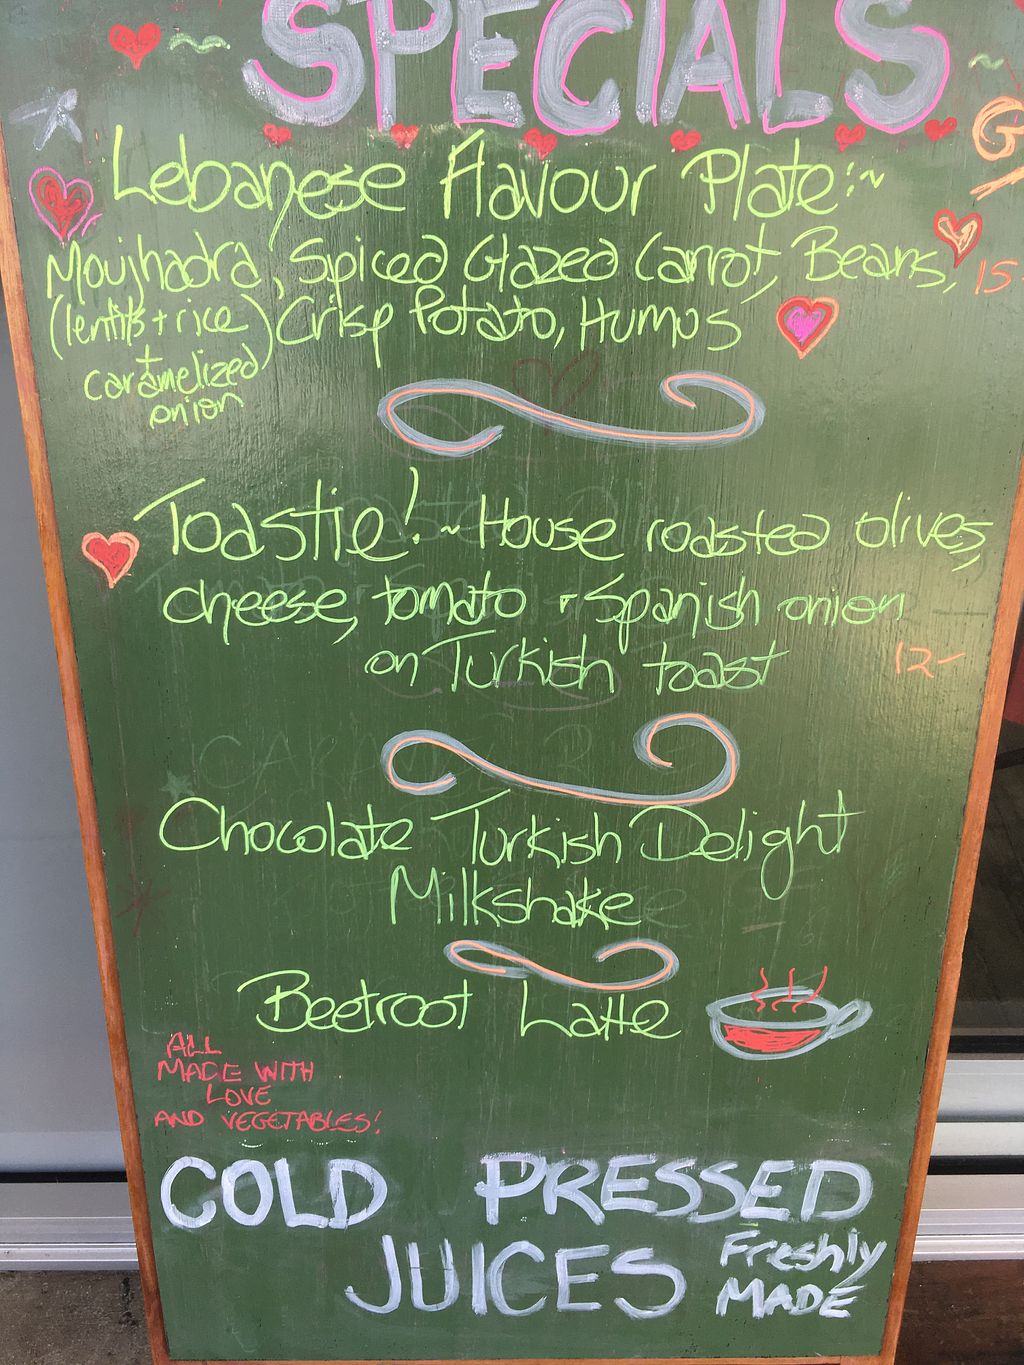 SPECIALS
G
Lebanese Flavour Plate:~
Moujhadra, Spiced Glazed Carrot, Beans, 15
(lentils + rice) Crisp Potato, Humus
+
caramelized
onion
Toastie! ~ House roasted olives,
cheese, tomato + Spanish onion
on Turkish toast 12-
Chocolate Turkish Delight
Milkshake
Beetroot Latte
ALL
MADE WITH
LOVE
AND VEGETABLES!
COLD PRESSED
JUICES Freshly
MADE